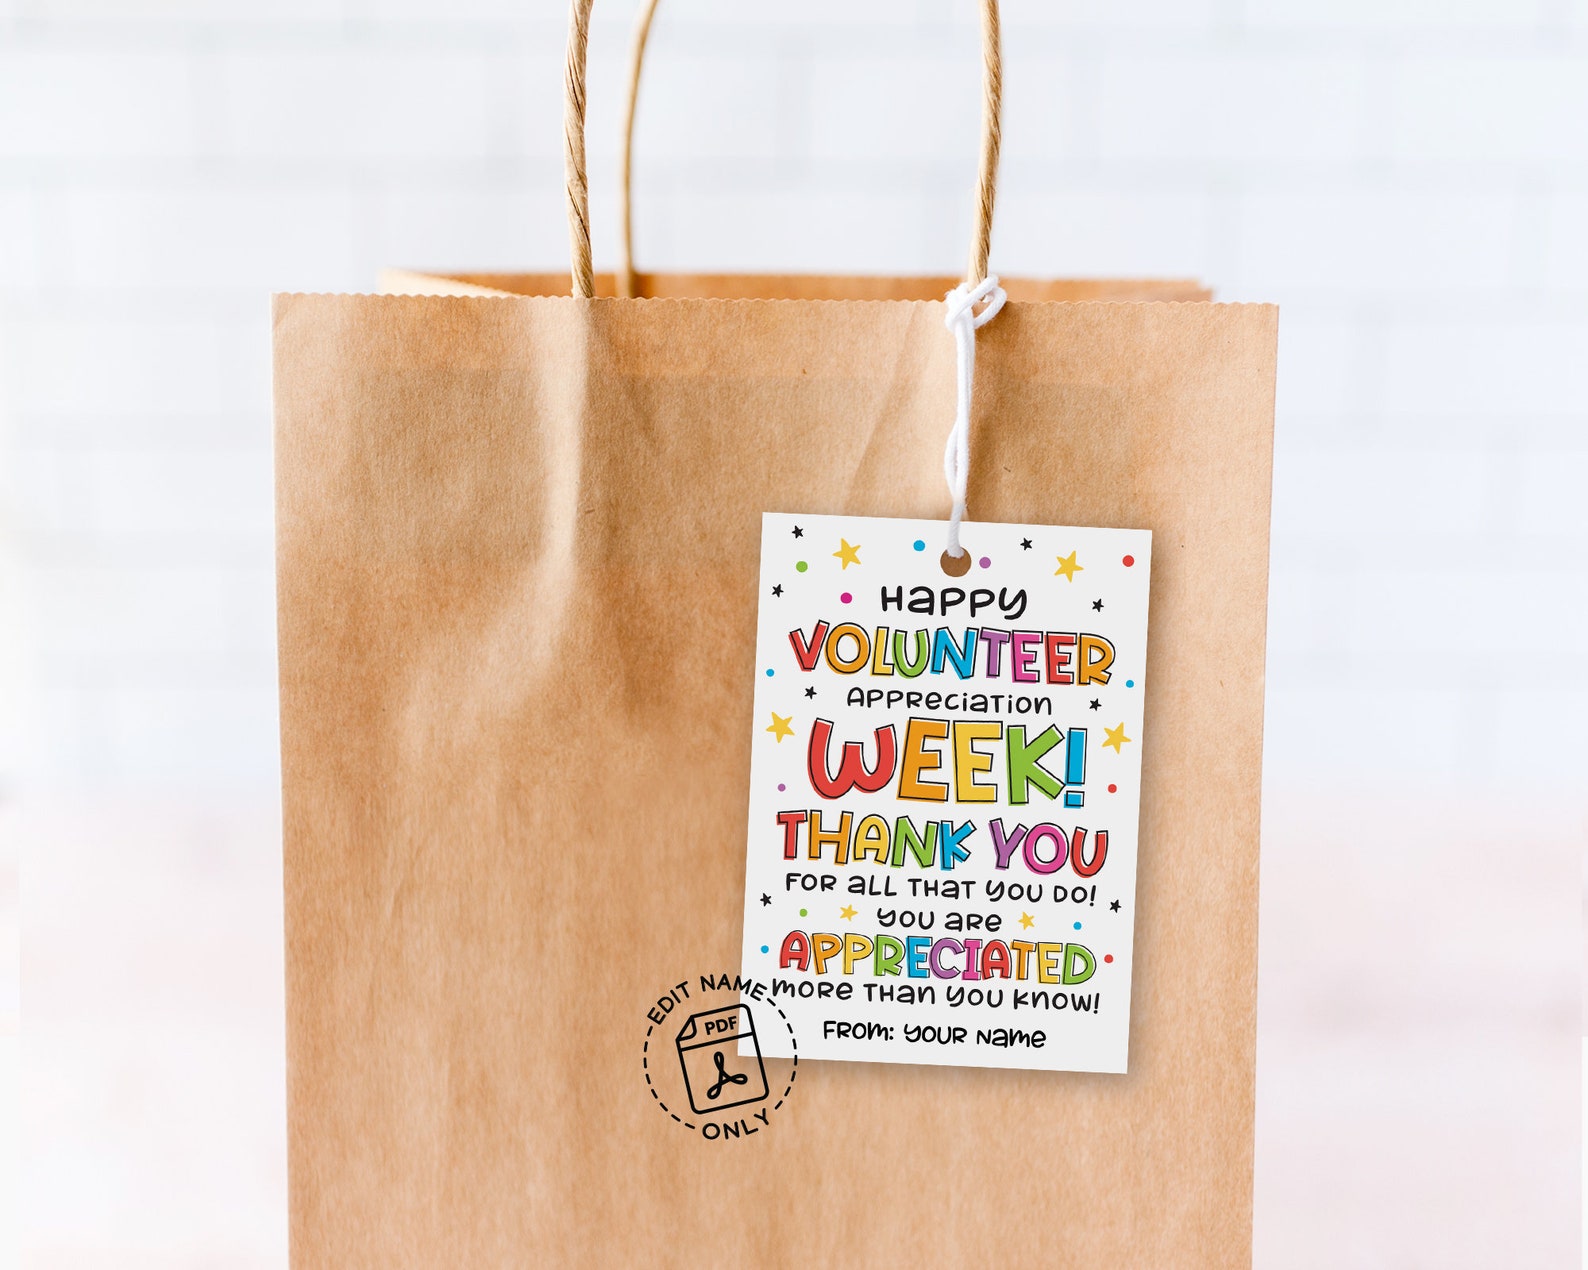 Happy
VOLUNTEER
APPRECIATION
WEEK!
THANK YOU
FOR ALL THAT YOU DO!
YOU ARE
APPRECIATED
MORE THAN YOU KNOW!
FROM: YOUR NAME
EDIT NAME
PDF
ONLY